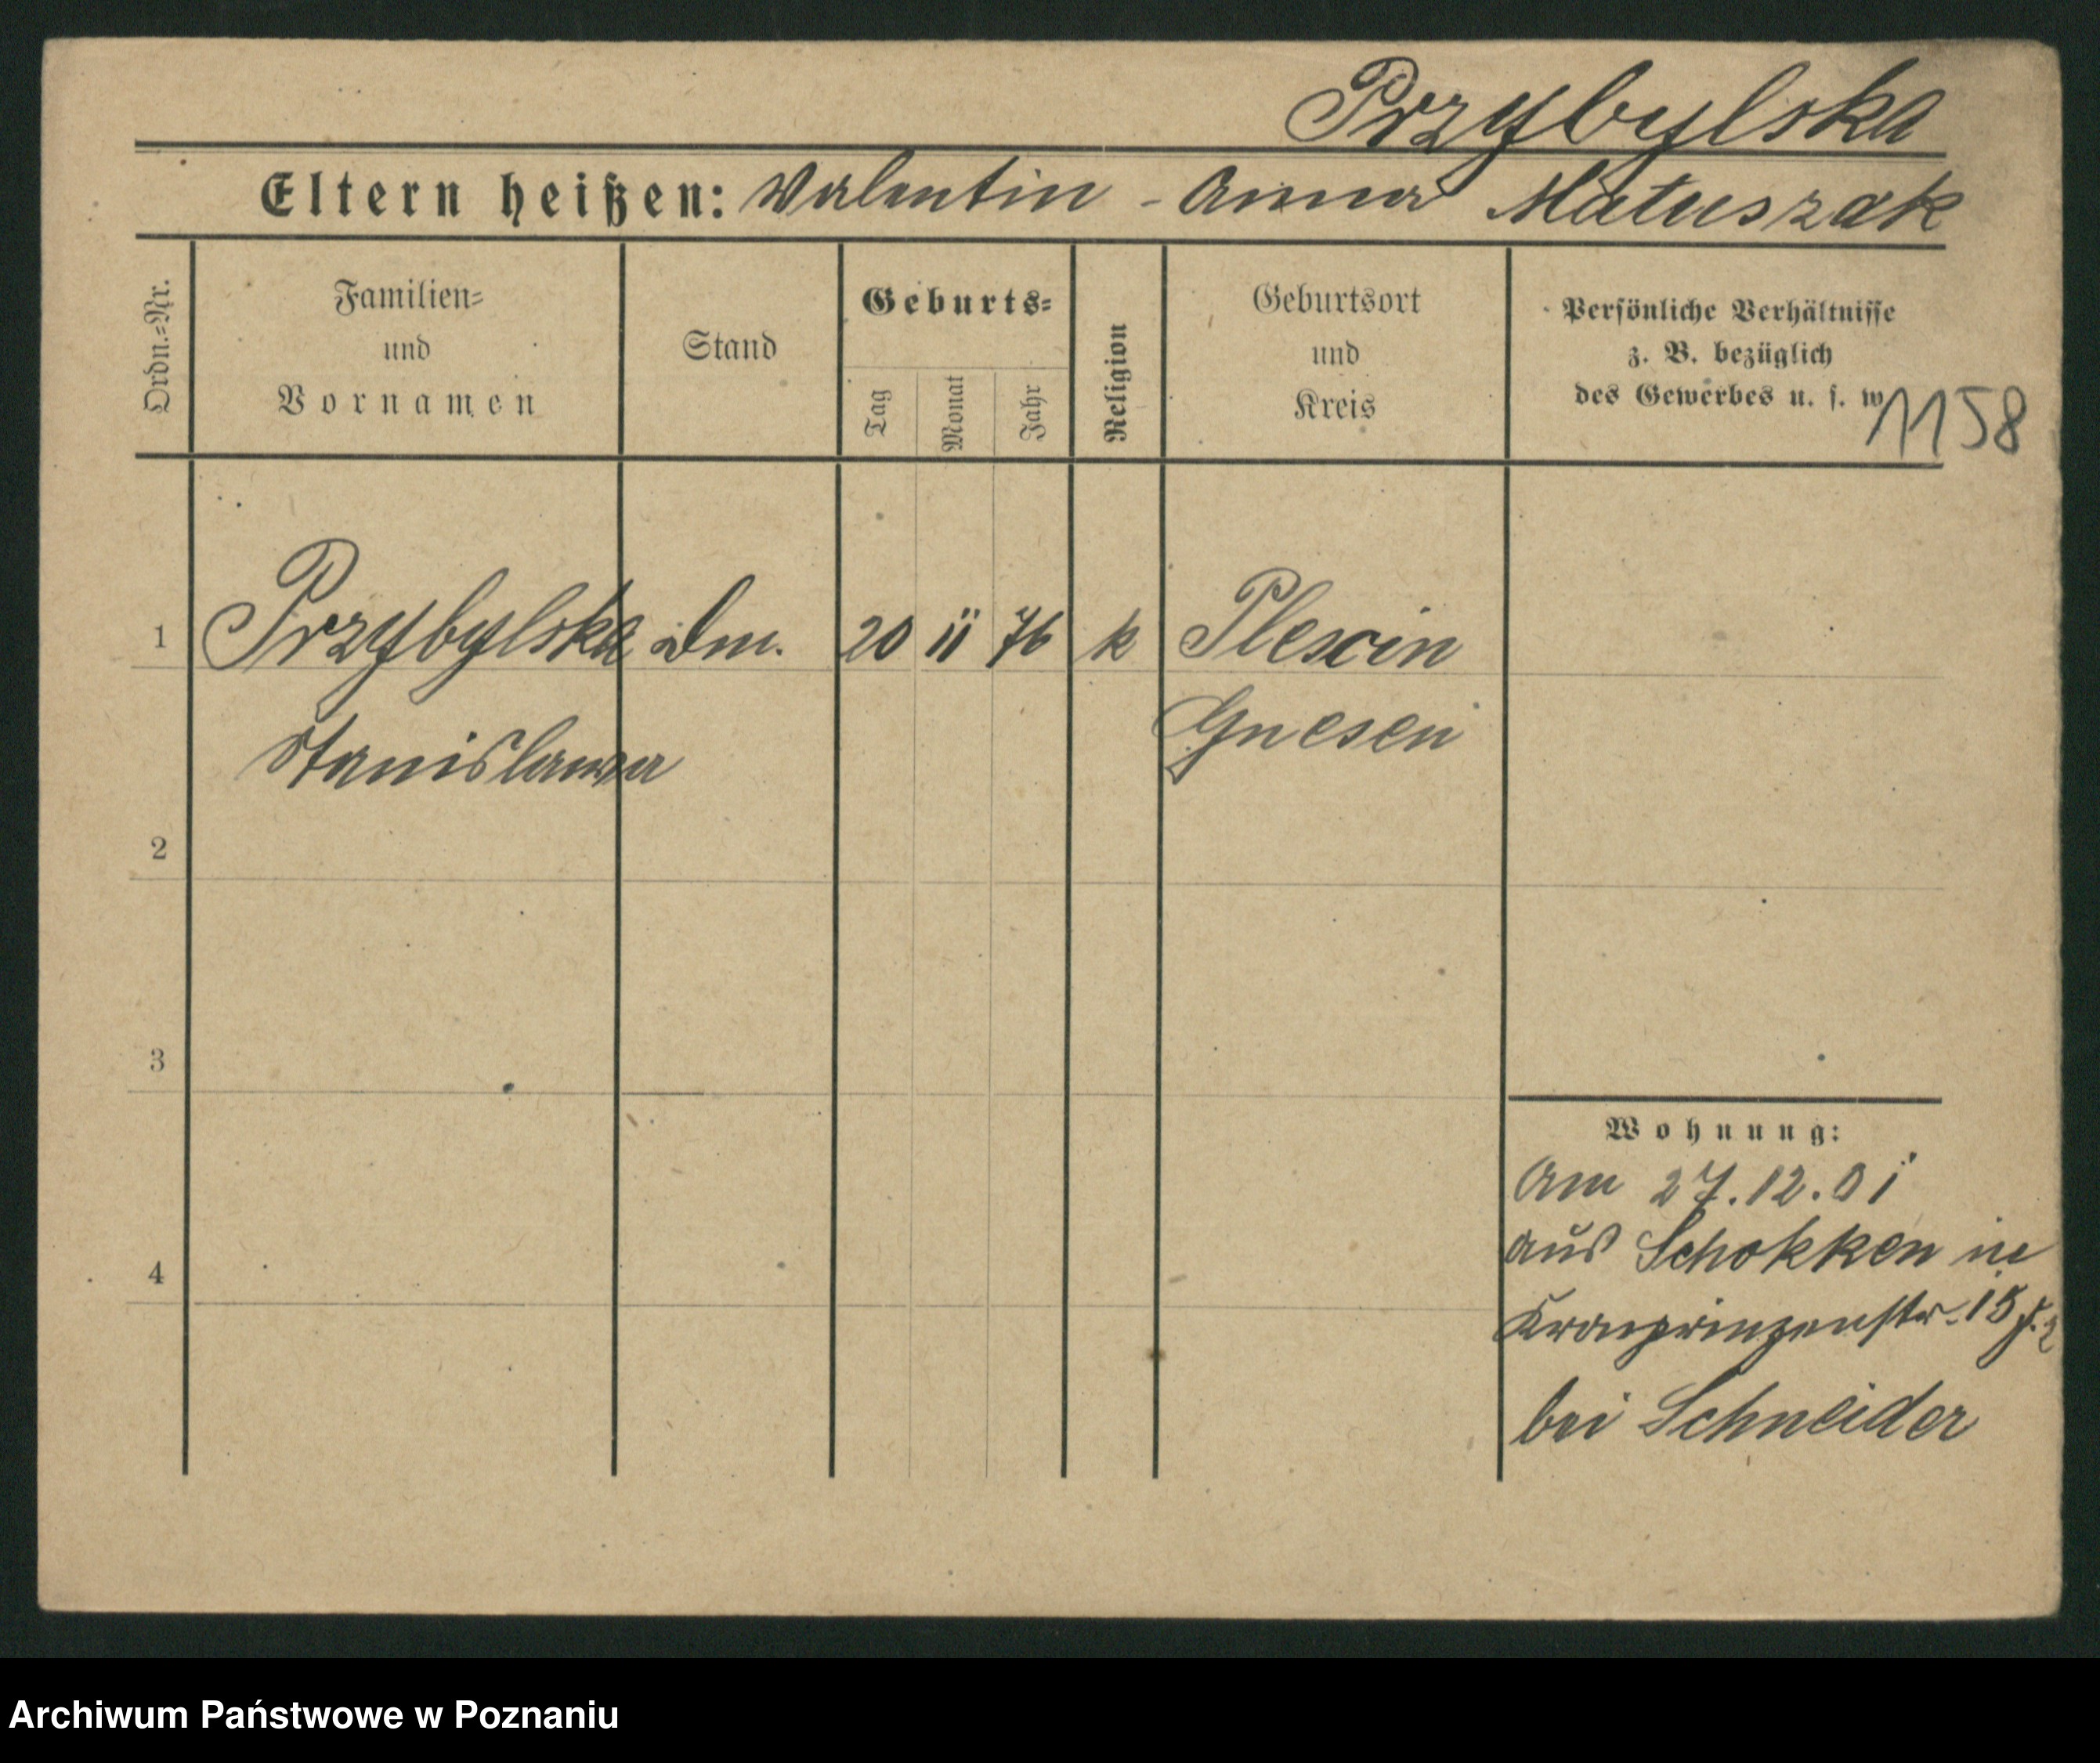 Przybylska
Eltern heißen: Valentin - Anna Matuszak
Ordn.=Nr.
Familien=
und
Vornamen
Stand
Geburts=
Tag
Monat
Jahr
Religion
Geburtsort
und
Kreis
Persönliche Verhältnisse
z. B. bezüglich
des Gewerbes u. s. w.
1158
1 Przybylska Dm. 20 11 76 k Plescin
Stanislawa Gnesen
2
3
4
Wohnung:
Am 27.12.01
aus Schokken in
Kronprinzenstr. 15
bei Schneider
Archiwum Państwowe w Poznaniu